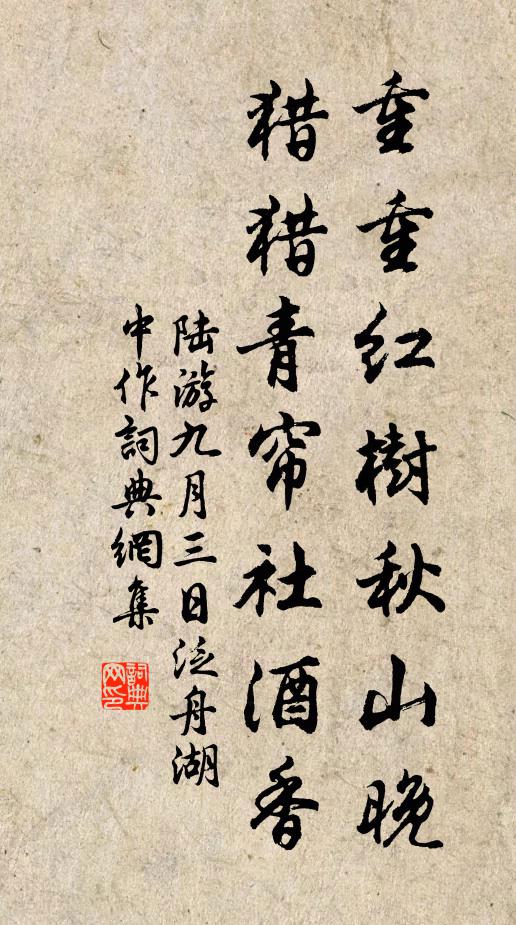 重重红樹秋山晚
猎猎青帘社酒香
陆游九月三日泛舟湖
中作詞典網集
詞典
网印